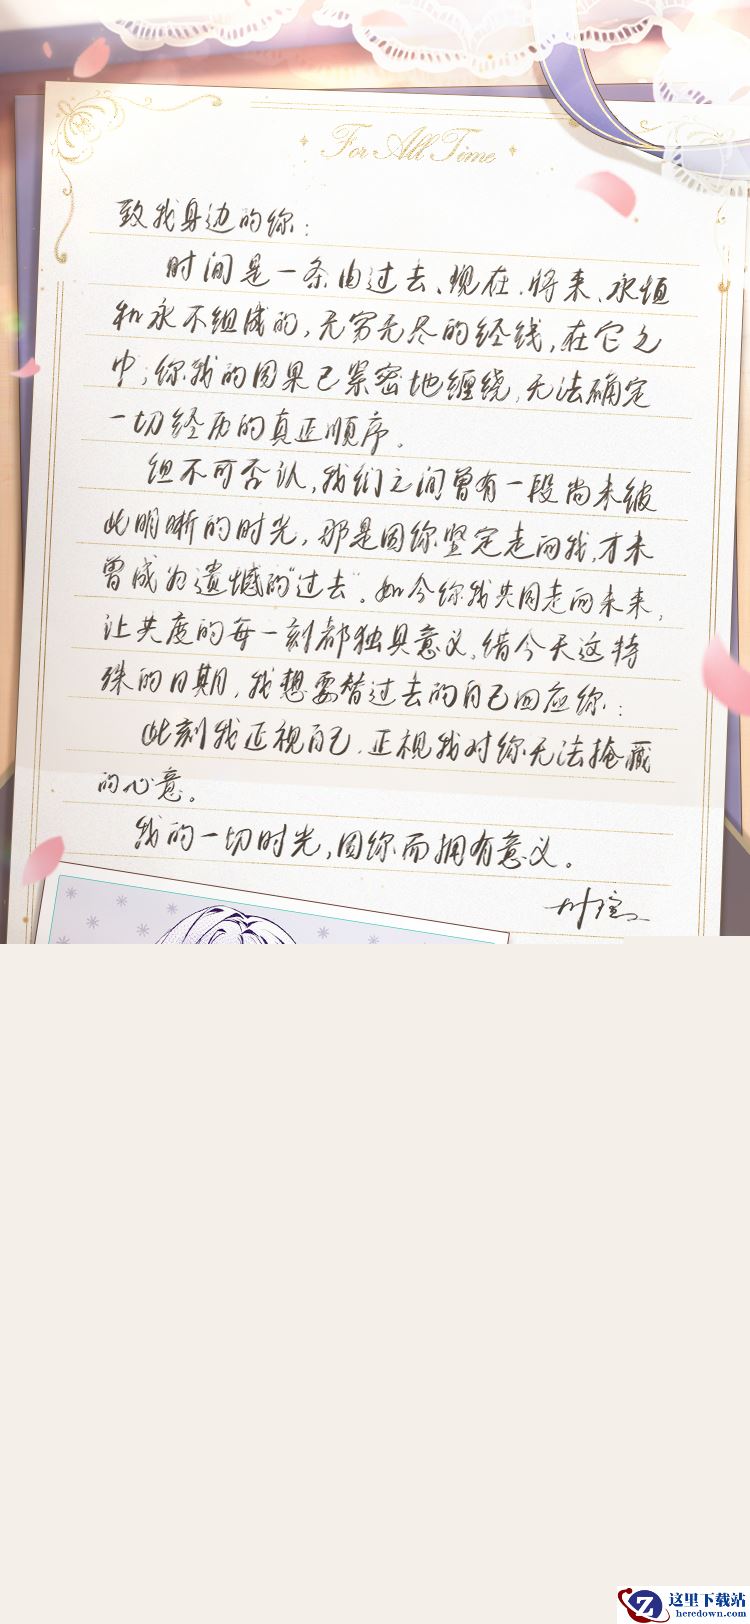 For All Time
致我身边的你：
时间是一条由过去、现在、将来、永恒
和永不组成的，无穷无尽的经线，在它之
中，你我的因果已紧密地缠绕，无法确定
一切经历的真正顺序。
但不可否认，我们之间曾有一段尚未彼
此明晰的时光，那是因你坚定走向我，才未
曾成为遗憾的“过去”。如今你我共同走向未来，
让共度的每一刻都独具意义，借今天这特
殊的日期，我想要替过去的自己回应你：
此刻我正视自己，正视我对你无法掩藏
的心意。
我的一切时光，因你而拥有意义。
叶瑄
这里下载站
heredown.com